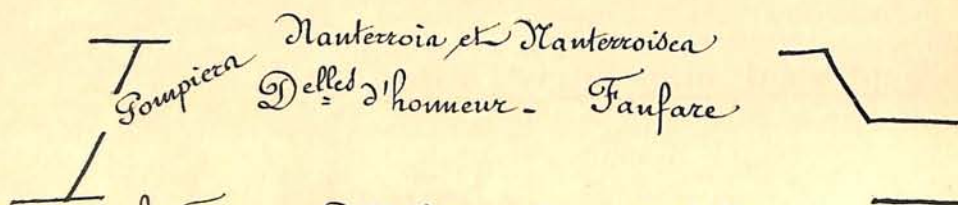 Nanterrois et Nanterroises
Pompiers
Delles d'honneur - Fanfare